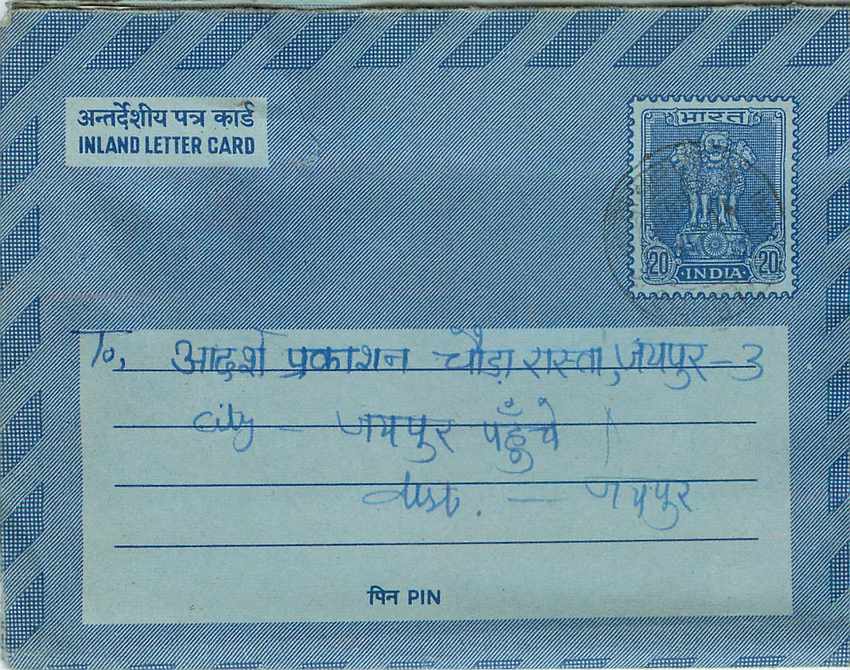 अन्तर्देशीय पत्र कार्ड
INLAND LETTER CARD
भारत
20 INDIA 20
To, आदर्श प्रकाशन चौड़ा रास्ता, जयपुर-3
city - जयपुर पहुँचे।
dist. - जयपुर
पिन PIN